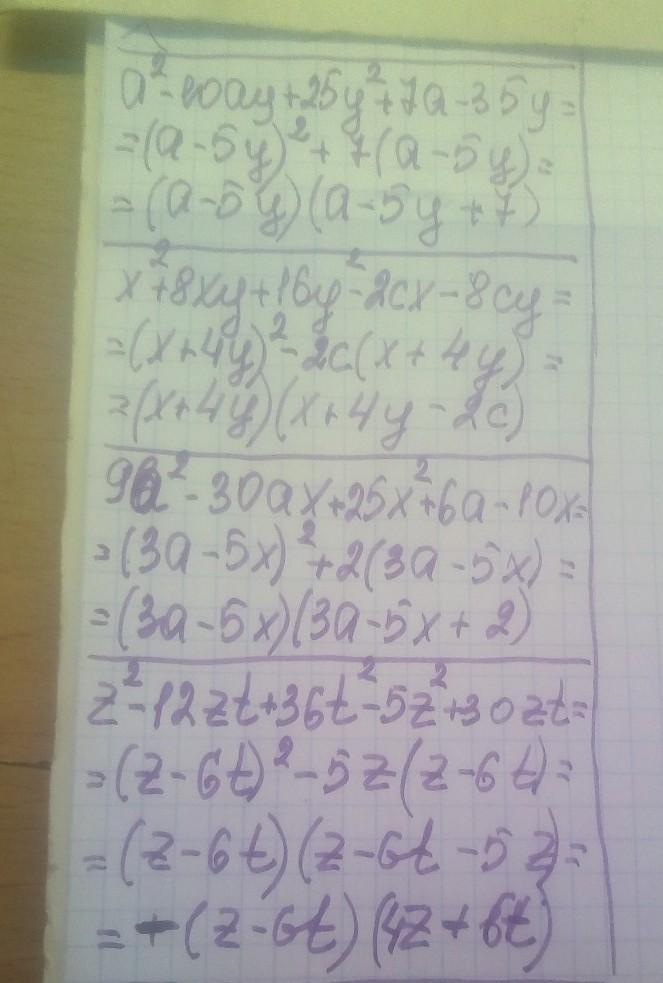 a² - 10ay + 25y² + 7a - 35y =
= (a - 5y)² + 7(a - 5y) =
= (a - 5y)(a - 5y + 7)
x² + 8xy + 16y² - 2cx - 8cy =
= (x + 4y)² - 2c(x + 4y) =
= (x + 4y)(x + 4y - 2c)
9a² - 30ax + 25x² + 6a - 10x =
= (3a - 5x)² + 2(3a - 5x) =
= (3a - 5x)(3a - 5x + 2)
z² - 12zt + 36t² - 5z² + 30zt =
= (z - 6t)² - 5z(z - 6t) =
= (z - 6t)(z - 6t - 5z) =
= -(z - 6t)(4z + 6t)